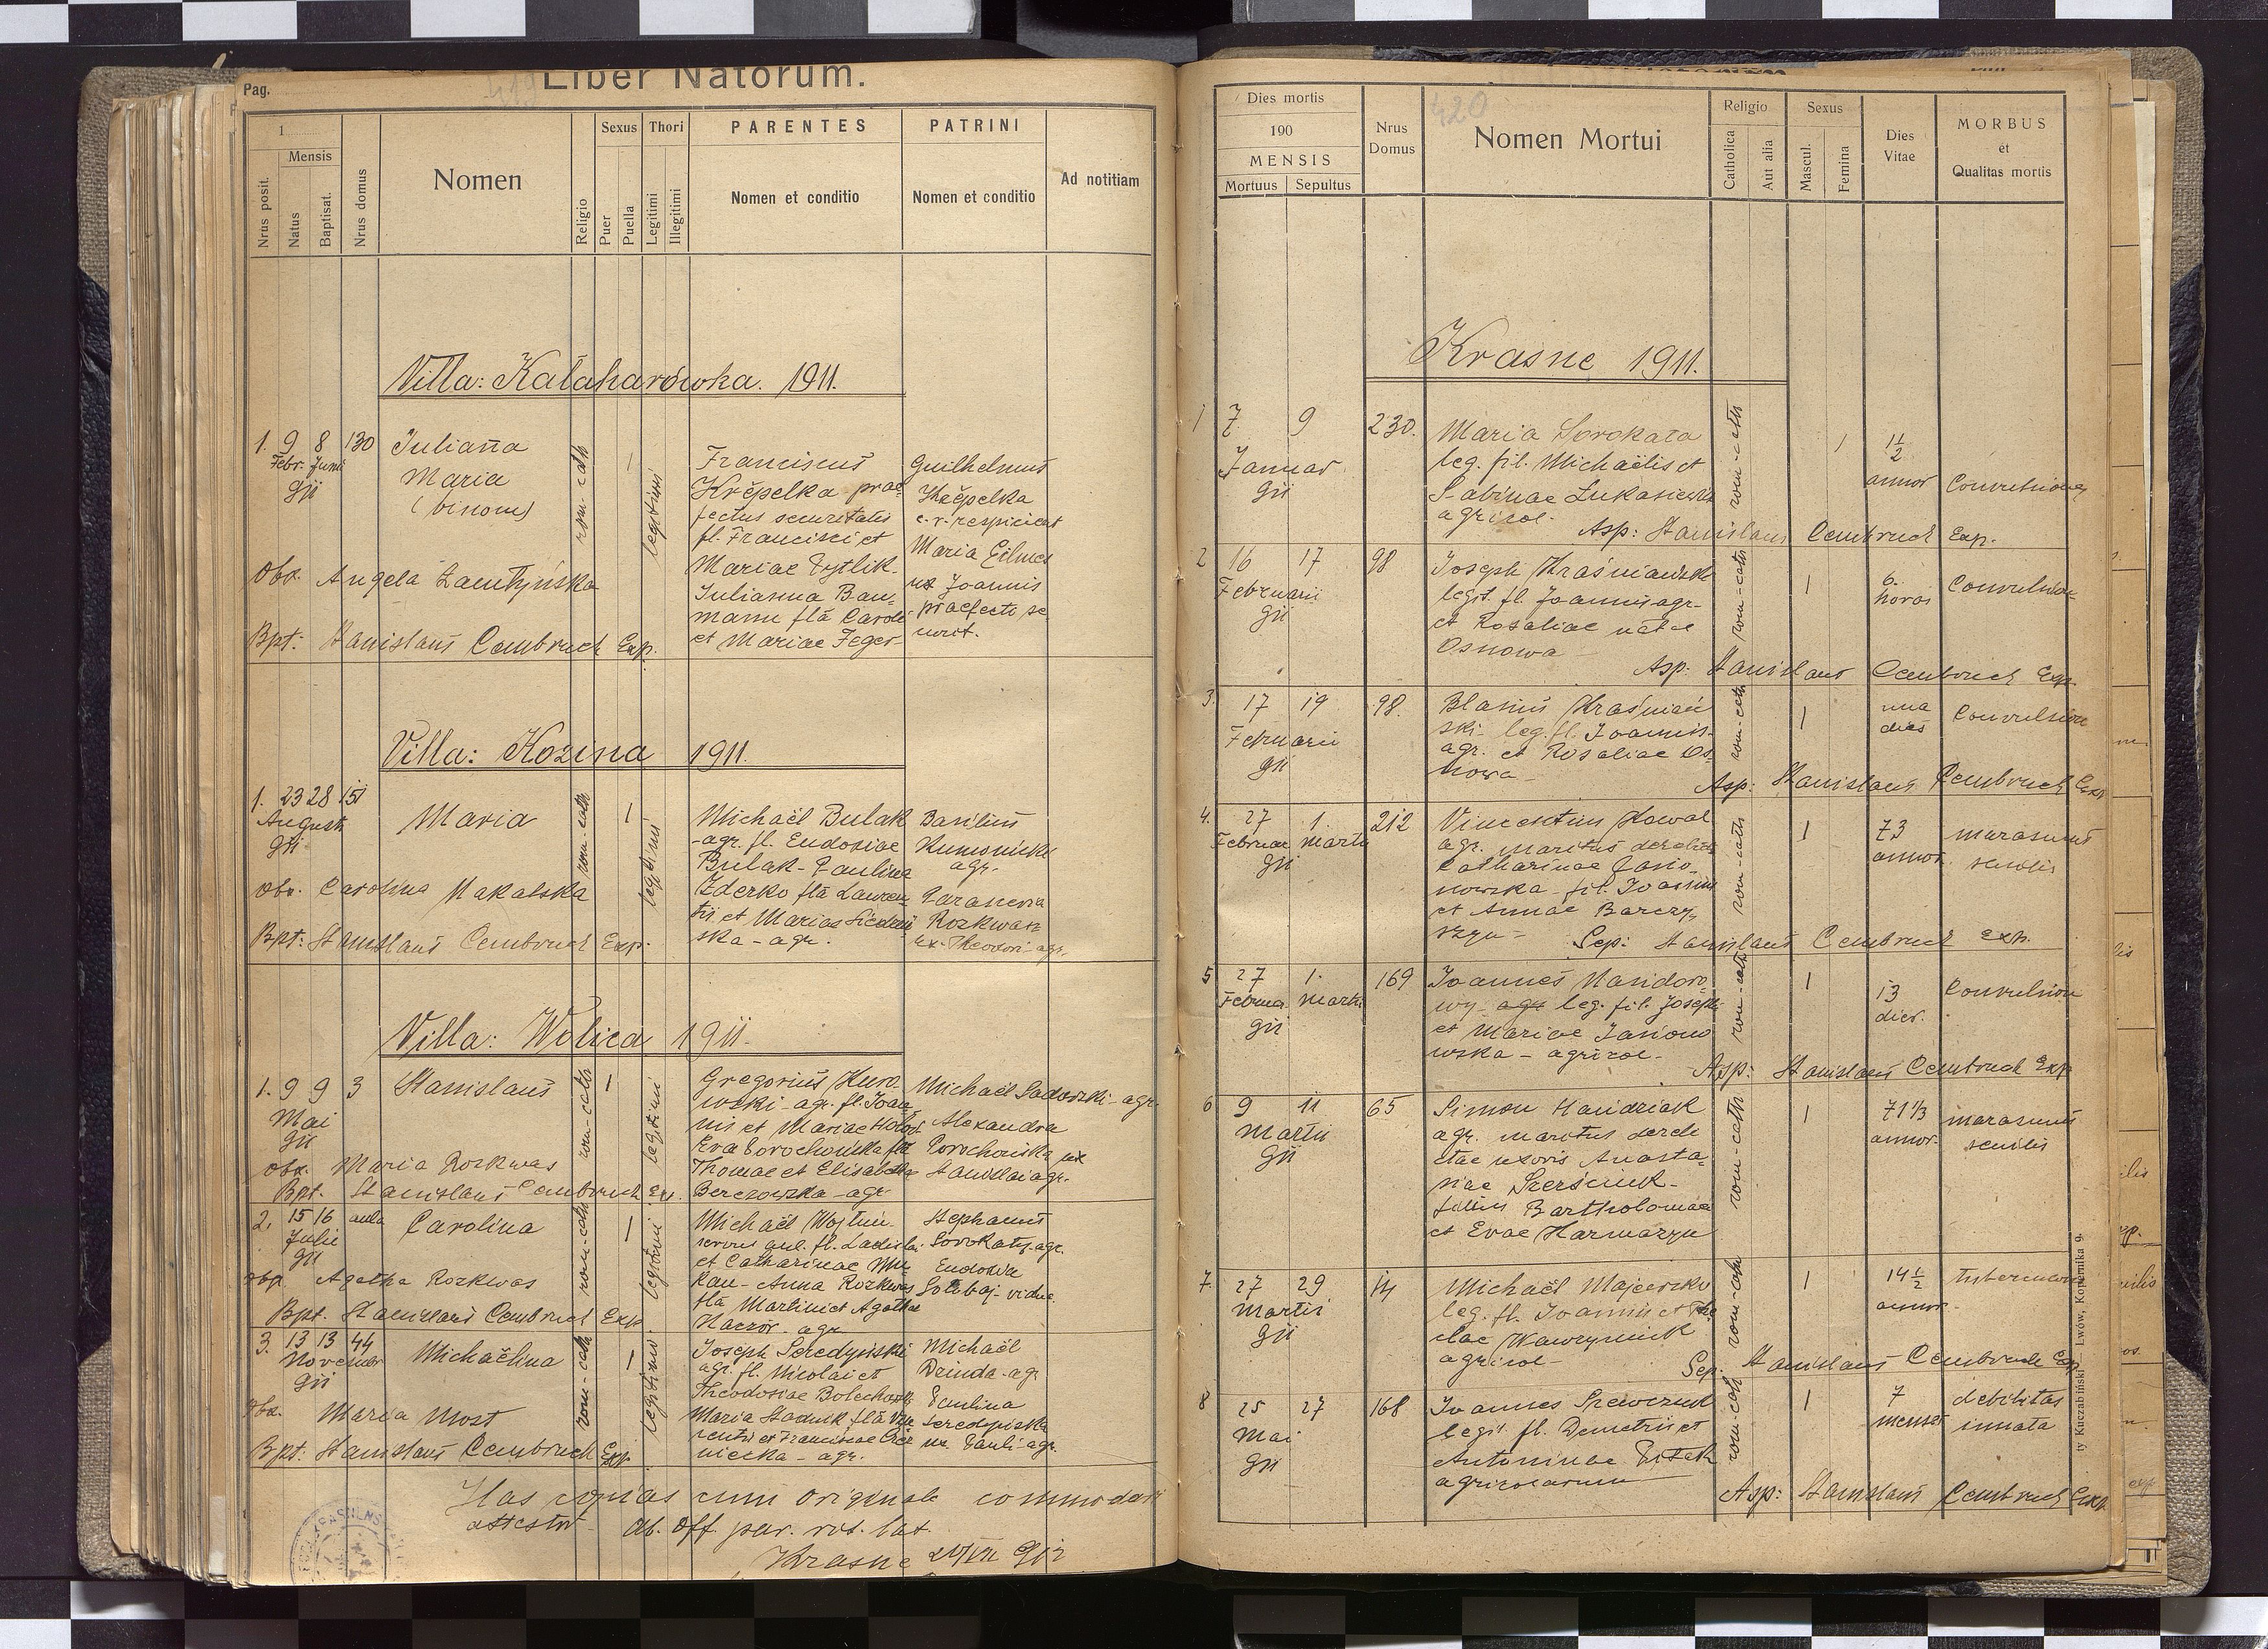 Pag.
419
Liber Natorum.
1
Mensis
Nrus posit.
Natus
Baptisat.
Nrus domus
Nomen
Religio
Sexus
Puer
Puella
Thori
Legitimi
Illegitimi
PARENTES
Nomen et conditio
PATRINI
Nomen et conditio
Ad notitiam
Villa: Kałaharówka. 1911.
1. 9 8 130
Febr. Junii
911
Julianna
Maria
(binom)
rom-cath
legitimi
Franciscus
Křepelka prae-
fectus securitatis
fl. Francisci et
Mariae Pytlik.
Julianna Bau-
mann flā Caroli
et Mariae Feger
Guilhelmus
Křepelka
c. r. respicient
Maria Eilmes
ux Joannis
praefecti se-
curit.
Obx. Angela
Bpt: Stanislaus Cembruch Exp.
Villa: Kozina 1911.
1. 23 28 151
Augusti
911
Maria
rom-cath
1
legitimi
Michaël Bulak
agr. fl. Eudosiae
Bulak - Paulina
Zderko flā Lauren-
tii et Mariae
ska - agr.
Basilius
agr.
Parancva
Rozkwas
ux. Theodori - agr.
Obx. Carolina Makalska
Bpt: Stanislaus Cembruch Exp.
Villa: Wolica 1911.
1. 9 9 3
Mai
911
Stanislaus
rom-cath
1
legitimi
Gregorius Huro-
wski - agr. fl. Joan-
nis et Mariae
Eva Dorochowska flā
Thomae et Elisabethae
Berezowska - agr.
Michaël Sadowski - agr.
Alexandra
Dorochowska ux
Stanislai agr.
Obx. Maria Rozkwas
Bpt. Stanislaus Cembruch Exp.
2. 15 16 aula
Julii
911
Carolina
rom-cath
1
legitimi
Michaël Wojtun-
servus aul. fl. Ladislai
et Catharinae Mu-
kan - Anna Rozkwas
flā Martini et Agatha
Kaczor - agr
Stephanus
Sorokaty - agr.
Eudoxia
vidua.
obx. Agatha Rozkwas
Bpt. Stanislaus Cembruch Exp
3. 13 13 44
November
911
Michaëlina
rom-cath
1
legitimi
Joseph Seredyński
agr. fl. Nicolai et
Theodosiae
Maria Stadnik flā Vin-
centii et Franciscae
niecka - agr.
Michaël
Dzinda - agr.
Paulina
Seredyńska
ux. Pauli - agr.
Obx. Maria Most
Bpt: Stanislaus Cembruch Exp.
Has copias cum originale commodari
attestor Ab. off. par. rit. lat.
Krasne 24/VII 912
Dies mortis
190
MENSIS
Mortuus
Sepultus
Nrus
Domus
420
Nomen Mortui
Religio
Catholica
Aut alia
Sexus
Mascul.
Femina
Dies
Vitae
MORBUS
et
Qualitas mortis
Krasne 1911.
1 7 9 230.
Januar
911
Maria Sorokata
leg. fil. Michaëlis et
Sabinae Łukasiewicz
agricol.
rom-cath
1
1 1/2
annor
Convulsiones
Asp: Stanislaus Cembruch Exp.
2 16 17 98
Februarii
911
Joseph Kraśniański
legit. fl. Joannis agr.
et Rosaliae natae
Osnowa
rom-cath
1
6.
horas
Convulsion
Asp. Stanislaus Cembruch Exp.
3. 17 19 98.
Februarii
911
Blasius Kraśniań-
ski leg. fl. Joannis
agr. et Rosaliae Os-
nowa
rom-cath
1
una
dies
Convulsion
Asp: Stanislaus Cembruch Exp.
4. 27 1. 212
Februar Martii
911
Vincentius Kowal
agr. maritus derelict
Catharinae Jasio-
nowska fil. Joannis
et Annae Barczy-
szyn
rom-cath
1
73
annor.
marasmus
senilis
Sep: Stanislaus Cembruch Exp.
5 27 1. 169
Februar Martii
911
Joannes Nandoro-
wy agr leg. fil. Josephi
et Mariae Jasiono-
wska - agricol.
rom-cath
1
13
dier.
Convulsion
Asp: Stanislaus Cembruch Exp
6 9 11 65
Martii
911
Simon Handziak
agr. maritus dereli-
ctae uxoris Anasta-
siae
filius Bartholomaei
et Evae Harmazyn
rom-cath
1
71 1/3
annor.
marasmus
senilis
7. 27 29 14
Martii
911
Michaël Majewski
leg. fl. Joannis et The-
clae Wawryniuk
agricol
rom-cath
1
14 1/2
annor.
Sep. Stanislaus Cembruch Exp
8 25 27 168
Mai
911
Joannes Szewczuk
legit. fl. Demetrii et
Antoninae
agricolarum
rom-cath
1
7
menses
debilitas
innata
Asp: Stanislaus Cembruch Exp.
ty Kuczabiński — Lwów, Kopernika 9.